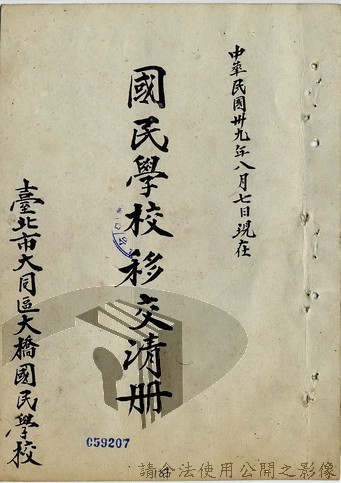 中華民國卅九年八月七日現在
國民學校移交清册
臺北市大同區大橋國民學校
059207
請合法使用公開之影像